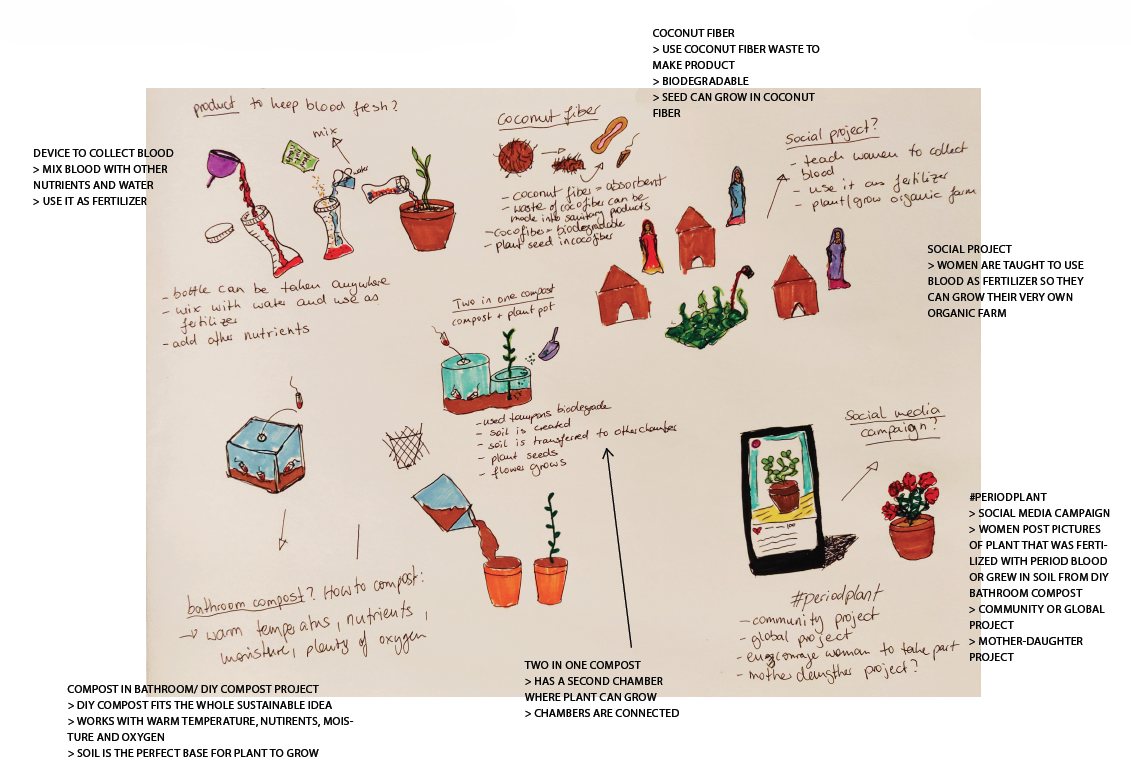 COCONUT FIBER
> USE COCONUT FIBER WASTE TO
MAKE PRODUCT
> BIODEGRADABLE
> SEED CAN GROW IN COCONUT
FIBER
product to keep blood fresh?
mix
water
DEVICE TO COLLECT BLOOD
> MIX BLOOD WITH OTHER
NUTRIENTS AND WATER
> USE IT AS FERTILIZER
- bottle can be taken anywhere
- mix with water and use as
fertilizer
- add other nutrients
Coconut fiber
- coconut fiber = absorbent
- waste of cocofiber can be
made into sanitary products
- Cocofiber = biodegradable
- plant seed in cocofiber
Social project?
- teach women to collect
blood
- use it as fertilizer
- plant/grow organic farm
SOCIAL PROJECT
> WOMEN ARE TAUGHT TO USE
BLOOD AS FERTILIZER SO THEY
CAN GROW THEIR VERY OWN
ORGANIC FARM
Two in one compost
compost + plant pot
- used tampons biodegrade
- soil is created
- soil is transferred to other chamber
- plant seeds
- flower grows
Social media
campaign?
100
#periodplant
- community project
- global project
- encourage woman to take part
- mother daughter project?
#PERIODPLANT
> SOCIAL MEDIA CAMPAIGN
> WOMEN POST PICTURES
OF PLANT THAT WAS FERTI-
LIZED WITH PERIOD BLOOD
OR GREW IN SOIL FROM DIY
BATHROOM COMPOST
> COMMUNITY OR GLOBAL
PROJECT
> MOTHER-DAUGHTER
PROJECT
bathroom compost? How to compost:
→ warm temperatures, nutrients,
moisture, plenty of oxygen
TWO IN ONE COMPOST
> HAS A SECOND CHAMBER
WHERE PLANT CAN GROW
> CHAMBERS ARE CONNECTED
COMPOST IN BATHROOM/ DIY COMPOST PROJECT
> DIY COMPOST FITS THE WHOLE SUSTAINABLE IDEA
> WORKS WITH WARM TEMPERATURE, NUTIRENTS, MOIS-
TURE AND OXYGEN
> SOIL IS THE PERFECT BASE FOR PLANT TO GROW